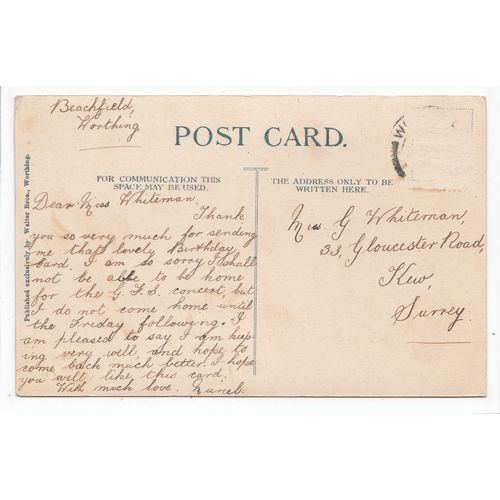 Beachfield,
Worthing
POST CARD.
FOR COMMUNICATION THIS
SPACE MAY BE USED.
THE ADDRESS ONLY TO BE
WRITTEN HERE.
Published exclusively by Walter Bros., Worthing.
Dear Miss Whiteman,
Thank
you so very much for sending
me that lovely Birthday
card. I am so sorry I shall
not be able to be home
for the G.F.S. concert, but
I do not come home until
the Friday following. I
am pleased to say I am keep-
ing very well, and hope to
come back much better. I hope
you will like this card.
With much love. Muriel.
Miss G Whiteman,
33, Gloucester Road,
Kew,
Surrey.